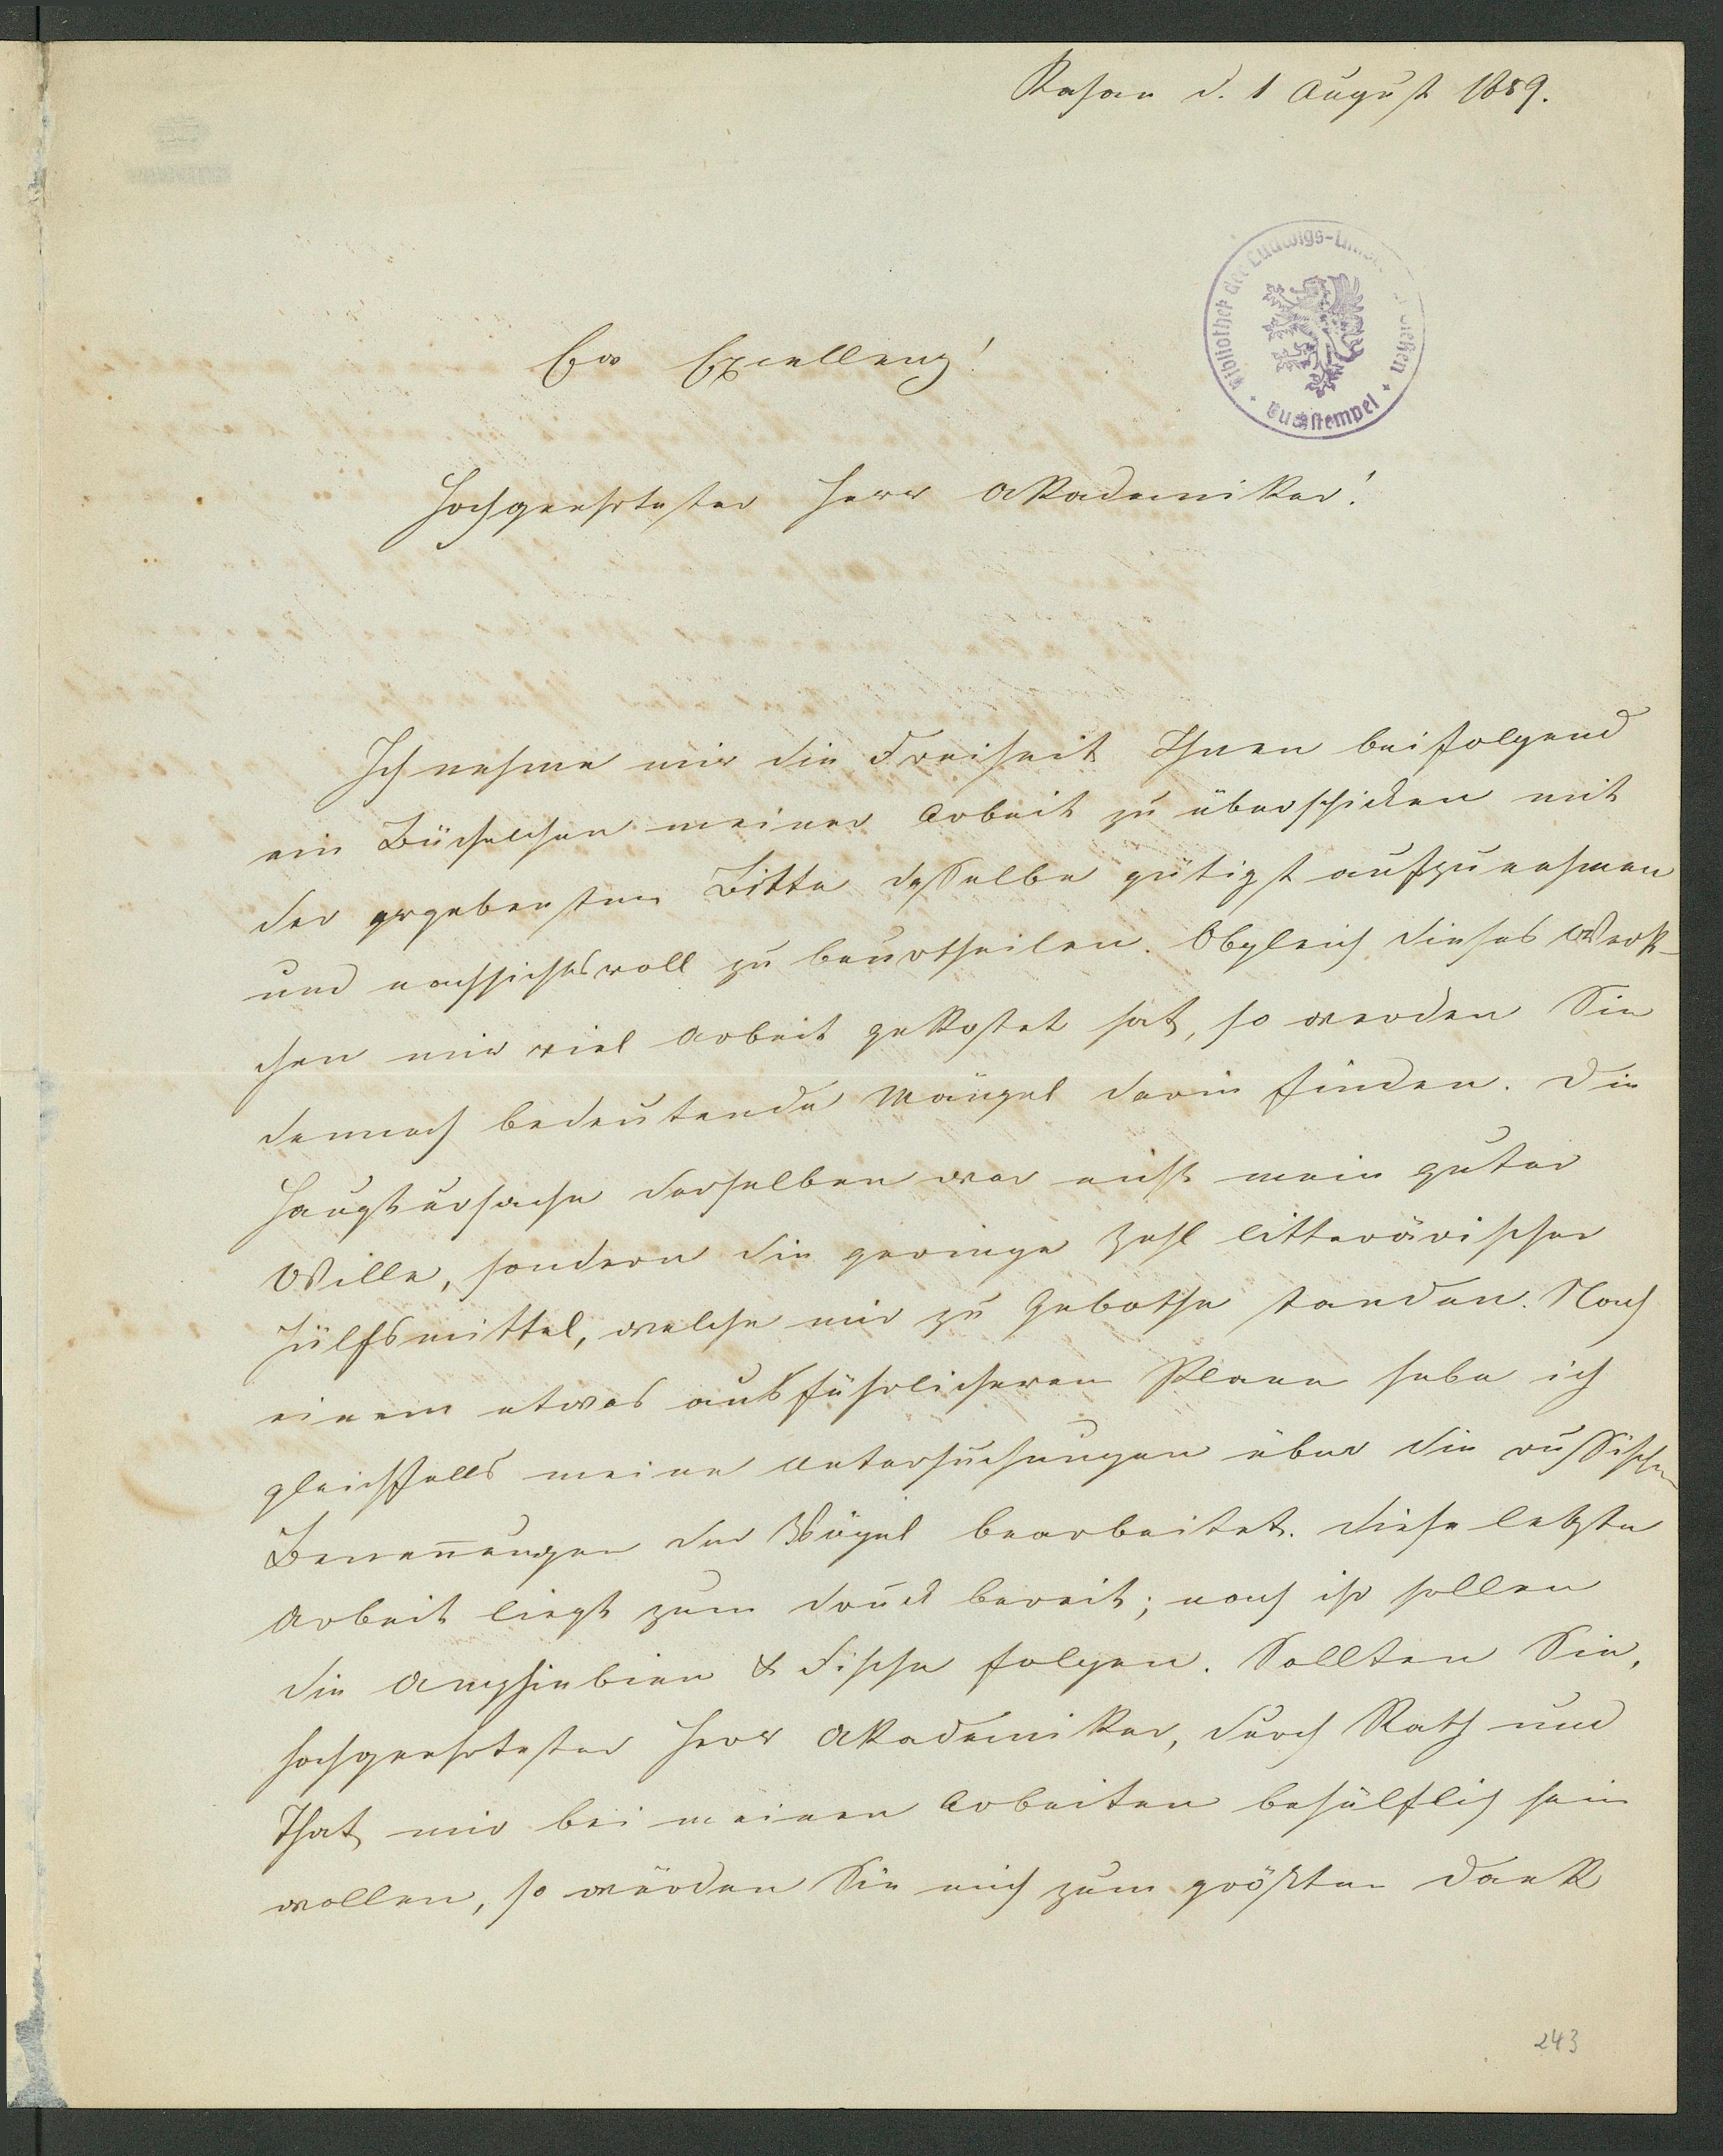 Kasan d. 1 August 1859.
Bibliothek der Ludwigs-Univ. Gießen
Buchstempel
Ew Excellenz!
Hochgeehrtester Herr Akademiker!
Ich nehme mir die Freiheit Ihnen beifolgend
ein Büchelchen meiner Arbeit zu überschicken mit
der ergebensten Bitte dasselbe gütigst aufzunehmen
und nachsichtsvoll zu beurtheilen. Obgleich dieses Werk-
chen mir viel Arbeit gekostet hat, so werden Sie
dennoch bedeutende Mängel darin finden. Die
Hauptursache derselben war nicht mein guter
Wille, sondern die geringe Zahl litterärischer
Hülfsmittel, welche mir zu Gebothe standen. Nach
einem etwas ausführlicheren Plane habe ich
gleichfalls meine Untersuchungen über die russischen
Benennungen der Vögel bearbeitet. Diese letzte
Arbeit liegt zum Druck bereit; nach ihr sollen
die Amphiebien & Fische folgen. Sollten Sie,
hochgeehrtester Herr Akademiker, durch Rath und
That mir bei meinen Arbeiten behülflich sein
wollen, so würden Sie mich zum größten Dank
243